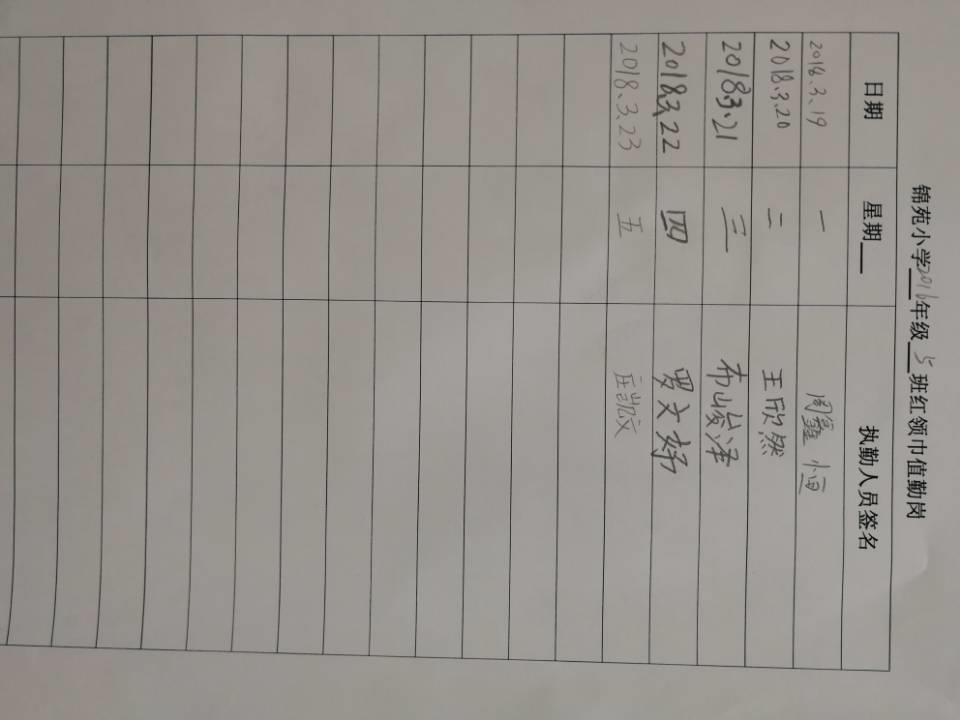 锦苑小学2016年级5班红领巾值勤岗
日期 星期 执勤人员签名
2018.3.19 一 周鑫恒
2018.3.20 二 王欣然
2018.3.21 三 布峻泽
2018.3.22 四 罗文妤
2018.3.23 五 庄凯文